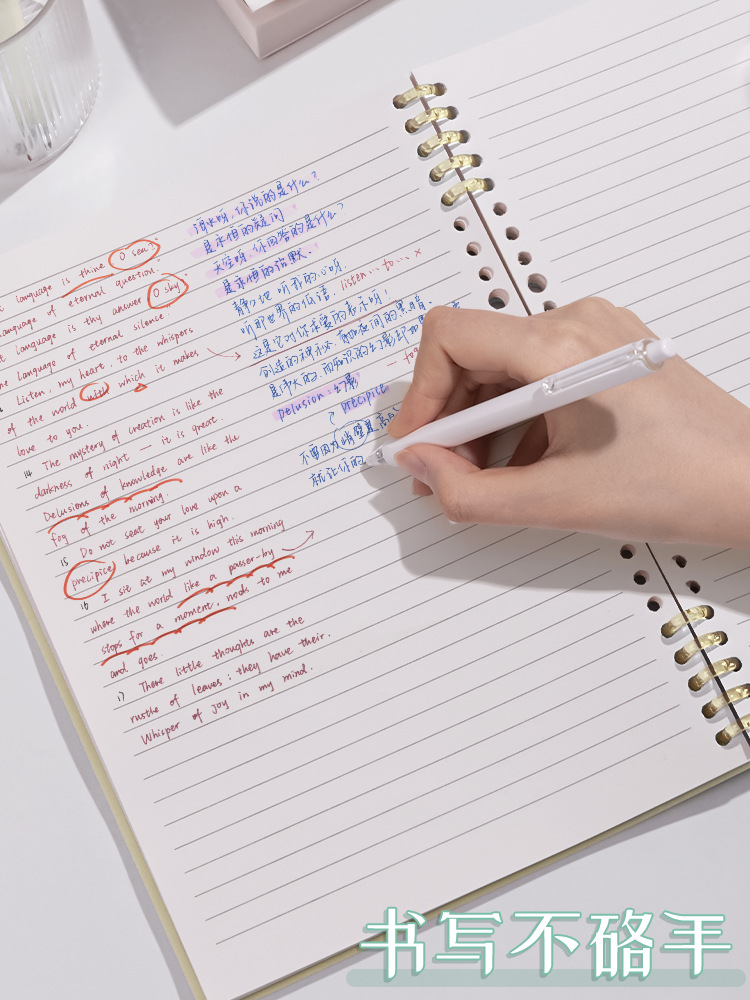 language is thine O sea?"
language of eternal question."
language is thy answer O sky
language of eternal silence.
Listen, my heart, to the whispers
of the world with which it makes
love to you.
14 The mystery of creation is like the
darkness of night — it is great.
Delusions of knowledge are like the
fog of the morning.
15 Do not seat your love upon a
precipice because it is high.
16 I sit at my window this morning
where the world like a passer-by
stops for a moment, nods to me
and goes.
17 There little thoughts are the
rustle of leaves; they have their.
Whisper of joy in my mind.
海水呀,你说的是什么?
是永恒的疑问
天空呀,你回答的是什么?
是永恒的沉默."
静静地听我的心呀,
listen…to… ×
听那世界的低语,
这是它对你求爱的表示呀!
创造的神秘,有如夜间的黑暗,
是伟大的,而知识的幻影却如
delusion:幻影
precipice
不要因为峭壁是高
就让你的
书写不硌手